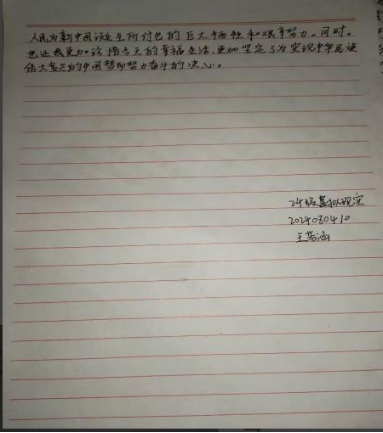 人民为新中国诞生所付出的巨大牺牲和艰辛努力。同时,
也让我更加珍惜今天的幸福生活,更加坚定了为实现中华民族
伟大复兴的中国梦而努力奋斗的决心。
24级
2024080410
王